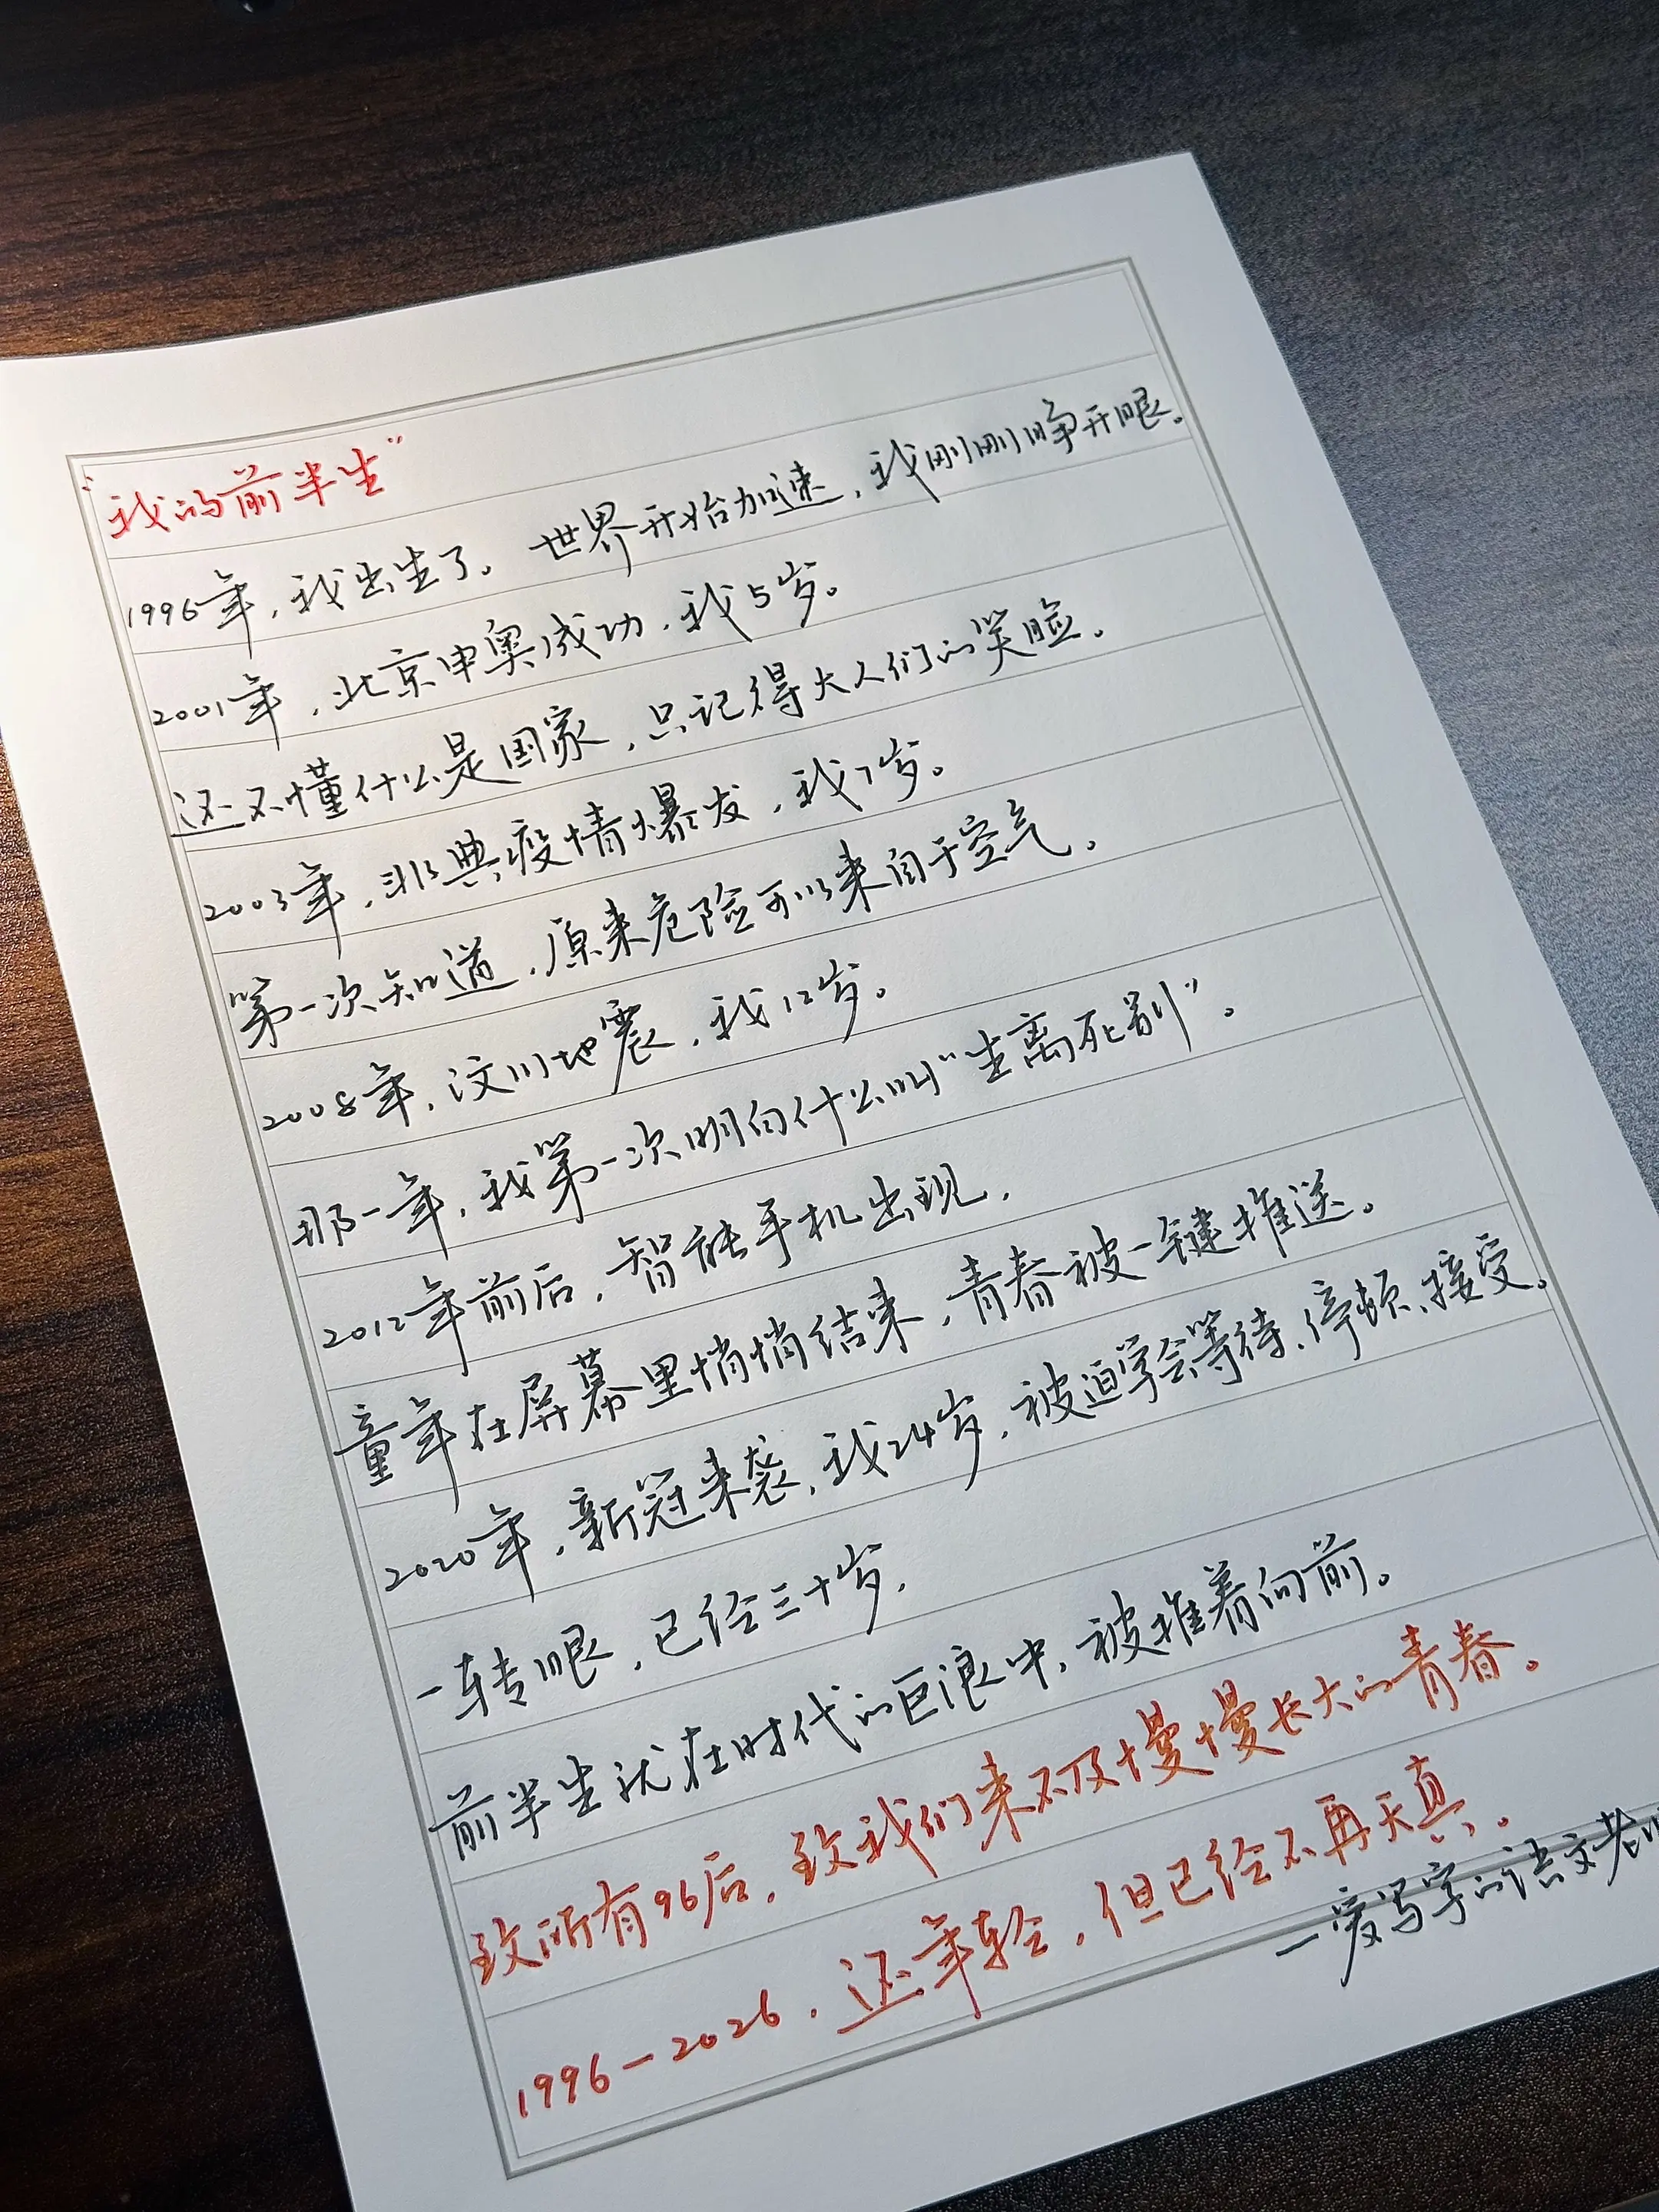 “我的前半生”
1996年，我出生了。世界开始加速，我刚刚睁开眼。
2001年，北京申奥成功，我5岁。
还不懂什么是国家，只记得大人们的笑脸。
2003年，非典疫情爆发，我7岁。
第一次知道，原来危险可以来自于空气。
2008年，汶川地震，我12岁。
那一年，我第一次明白什么叫“生离死别”。
2012年前后，智能手机出现，
童年在屏幕里悄悄结束，青春被一键推送。
2020年，新冠来袭，我24岁，被迫学会等待、停顿、接受。
一转眼，已经三十岁，
前半生就在时代的巨浪中，被推着向前。
致所有96后，致我们来不及慢慢长大的青春。
1996-2026，还年轻，但已经不再天真。
一爱写字的语文老师